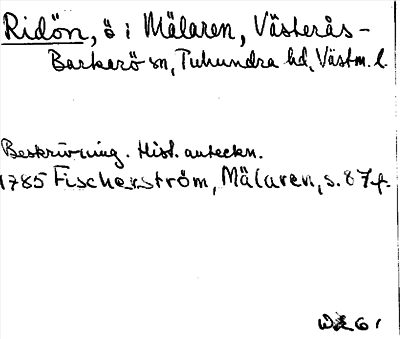 Ridön, ö i Mälaren, Västerås-
Barkarö sn, Tuhundra hd, Västm. l.
Beskrivning. Hist. anteckn.
1785 Fischerström, Mälaren, s. 87 f.